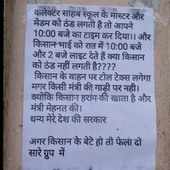 कलेक्टर साहब स्कूल के मास्टर और
मेडम को ठंड लगती है तो आपने
10:00 बजे का टाइम कर दिया।। और
किसान भाई को रात में 10:00 बजे
और 2 बजे लाइट देते हैं क्या किसान
को ठंड नहीं लगती है????
किसान के वाहन पर टोल टेक्स लगेगा
मगर किसी मंत्री की गाड़ी पर नही।
क्योकि किसान हराम की खाता है और
मंत्री मेहनत की।
धन्य मेरे देश की सरकार
अगर किसान के बेटे हो तो फेला दो
सारे ग्रुप में